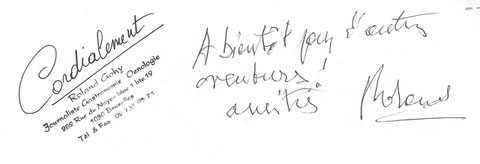 Cordialement
Roland Gohy
Journaliste Gastronomie Oenologie
Rue du Noyer 1 bte 19
1030 Bruxelles
Tél & Fax
A bientôt pour d'autres
aventures !
amitiés
Roland